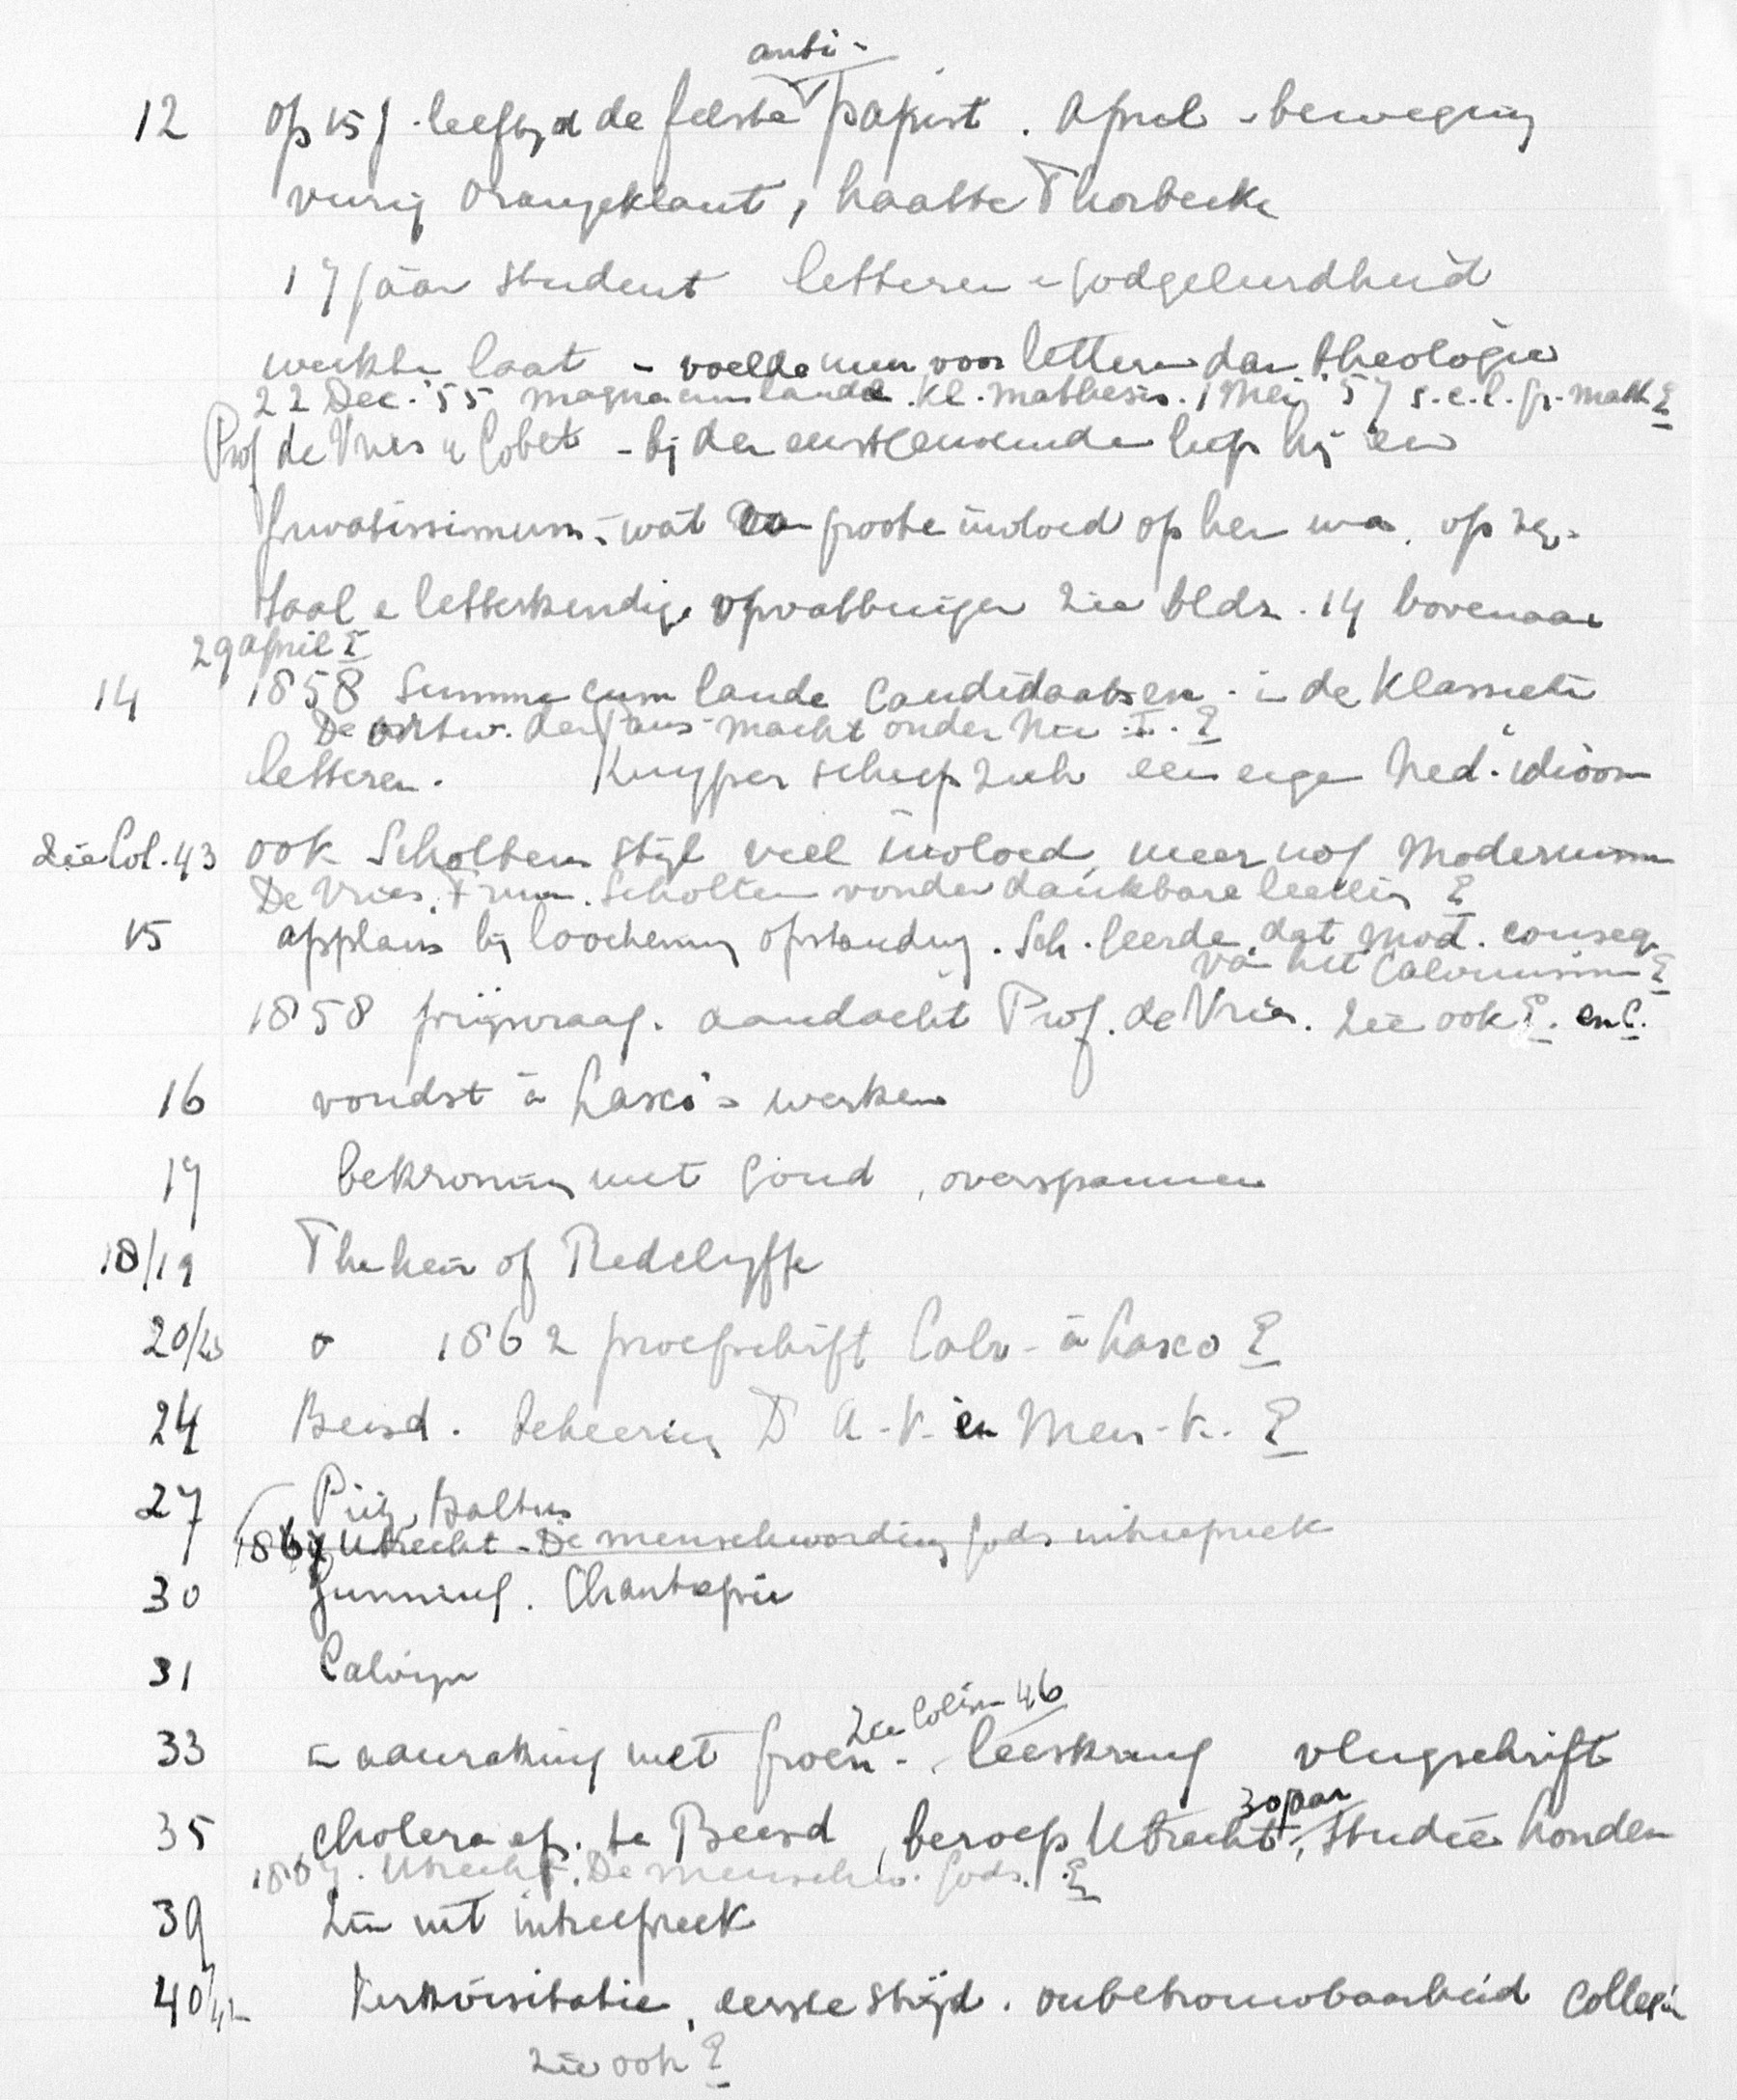 anti-
12 op 15 j. leeftyd de felste papist. April-beweging
vurig Oranjeklant, haatte Thorbecke
17 jaar student letteren - godgeleerdheid
werkte laat - voelde meer voor letteren dan theologie
22 Dec. '55 magna cum laude. Kl. mathesis. 1 Mei '57 s.c.l. gr. math E
Prof de Vries & Cobet - bij den eerstgenoemde liep hij een
privatissimum, wat van groote invloed op hem was. op zijn
taal & letterkundige opvattingen zie bldz. 14 bovenaan
29 april E
14 1858 Summa cum laude Candidaatsex. in de Klassieke
De ontw. der Paus-macht onder Nic. I. E
letteren. Kuyper schiep zich een eigen Ned. idioom
zie Col. 43 ook Scholtens stijl veel invloed, meer nog Modernisme
De Vries. Fruin. Scholten vonden dankbare leerling E
15 applaus bij loochening opstanding. Sch. leerde, dat mod. conseq.
van het Calvinisme E
1858 prijsvraag. aandacht Prof. de Vries. zie ook E. en C.
16 vondst à Lasco's werken
17 bekroning met goud, overspannen
18/19 The heir of Redclyffe
20/23 o 1862 proefschrift Calv - à Lasco E
24 Beesd. bekeering D A.-K. en Men-K. E
27 Pietje Baltus
1867 Utrecht - De menschwording Gods intreepreek
30 Gunning. Chantepie
31 Calvijn
zie Colijn 46
33 in aanraking met Groen -, leeskring vlugschrift
30 jaar
35 cholera ep. te Beesd, beroep Utrecht, studie honden
1867. Utrecht. De menschw. Gods. E
39 Zin uit intreepreek
40/42 Kerkvisitatie, eerste strijd. onbetrouwbaarheid collegin
zie ook E